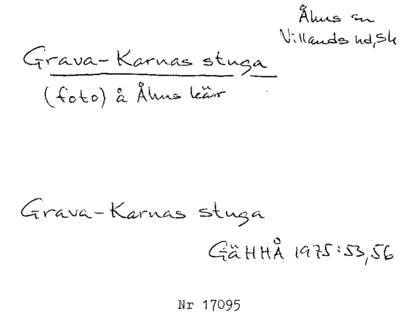 Åhus sn
Villands hd, Sk
Grava-Karnas stuga
(foto) å Åhus kär
Grava-Karnas stuga
GäHHÅ 1975:53,56
Nr 17095